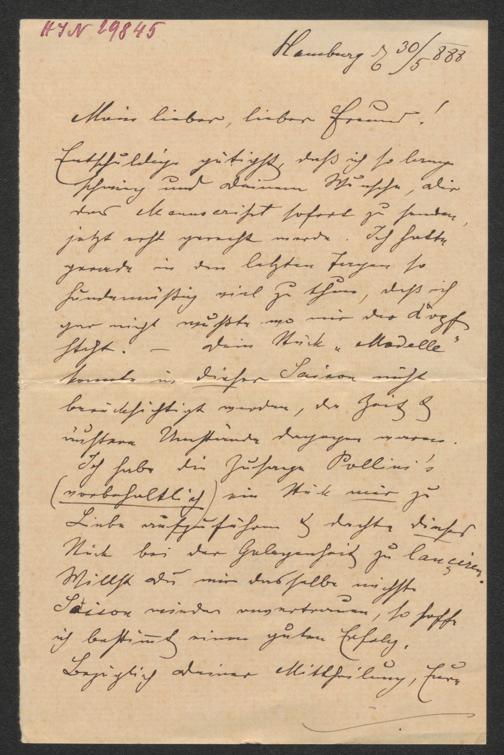 HIN 29845
Hamburg d 30/5 888
Mein lieber, lieber Freund!
Entschuldige gütigst, daß ich so lange
schwieg und Deinem Wunsche, dir
das Manuscript sofort zu senden,
jetzt erst gerecht werde. Ich hatte
gerade in den letzten Tagen so
hundemäßig viel zu thun, daß ich
gar nicht wußte wo mir der Kopf
steht. — Dein Stück „Modelle"
konnte in dieser Saison nicht
berücksichtigt werden, da Zeit &
Umstände dagegen waren.
Ich habe die Zusage Pollini's
(vorbehaltlich) ein Stück mir zu
Liebe aufzuführen & dachte dieses
Stück bei der Gelegenheit zu lanciren.
Willst du mir dasselbe nächste
Saison wieder anvertrauen, so hoffe
ich bestimmt einen guten Erfolg.
Bezüglich Deiner Mittheilung, Eure